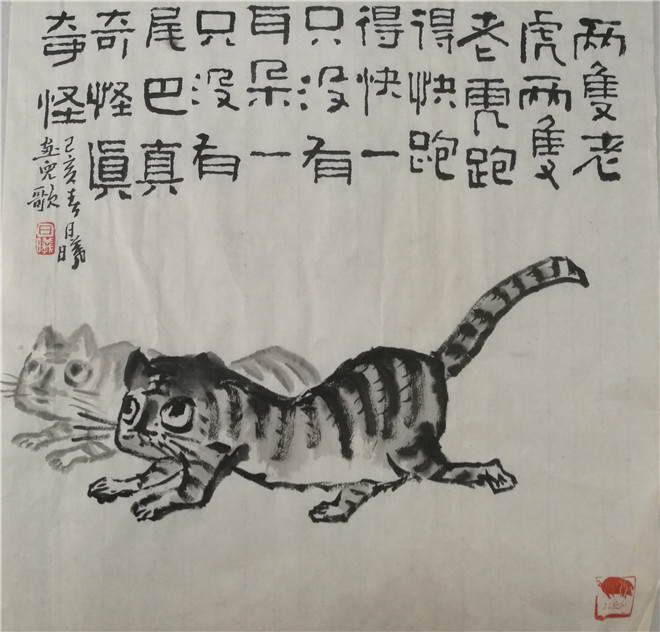 兩隻老
虎兩隻
老虎跑
得快跑
得快一
只没有
耳朵一
只没有
尾巴真
奇怪眞
奇怪
己亥春日曦
画兒歌
日曦